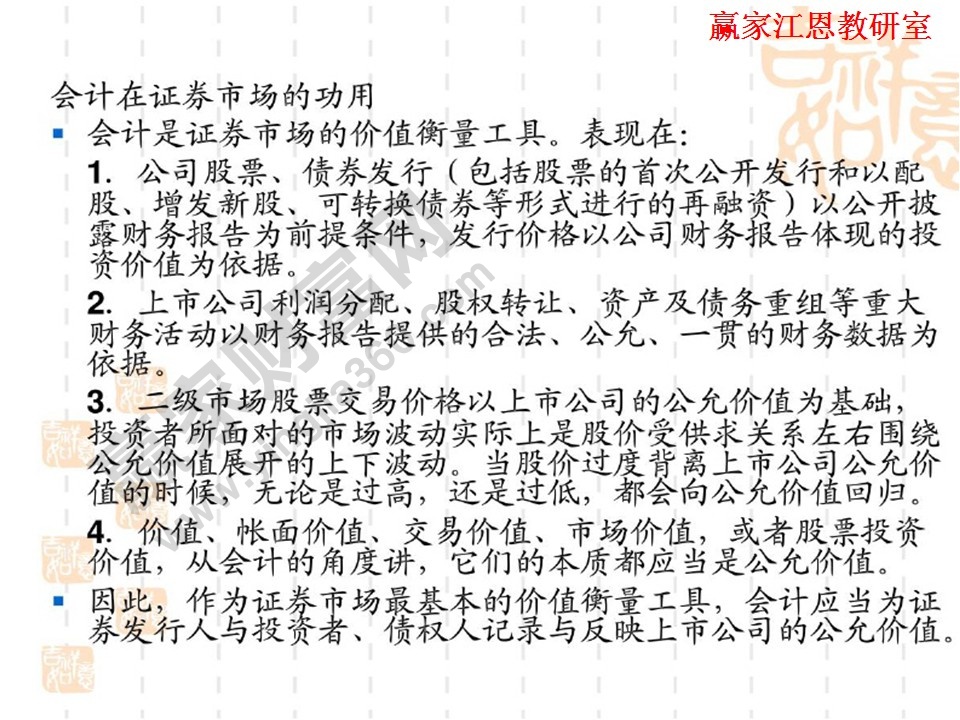 赢家江恩教研室
会计在证券市场的功用
▪ 会计是证券市场的价值衡量工具。表现在：
1. 公司股票、债券发行（包括股票的首次公开发行和以配
股、增发新股、可转换债券等形式进行的再融资）以公开披
露财务报告为前提条件，发行价格以公司财务报告体现的投
资价值为依据。
2. 上市公司利润分配、股权转让、资产及债务重组等重大
财务活动以财务报告提供的合法、公允、一贯的财务数据为
依据。
3. 二级市场股票交易价格以上市公司的公允价值为基础，
投资者所面对的市场波动实际上是股价受供求关系左右围绕
公允价值展开的上下波动。当股价过度背离上市公司公允价
值的时候，无论是过高，还是过低，都会向公允价值回归。
4. 价值、帐面价值、交易价值、市场价值，或者股票投资
价值，从会计的角度讲，它们的本质都应当是公允价值。
▪ 因此，作为证券市场最基本的价值衡量工具，会计应当为证
券发行人与投资者、债权人记录与反映上市公司的公允价值。
赢家财富网
www.yingjia360.com
吉祥如意